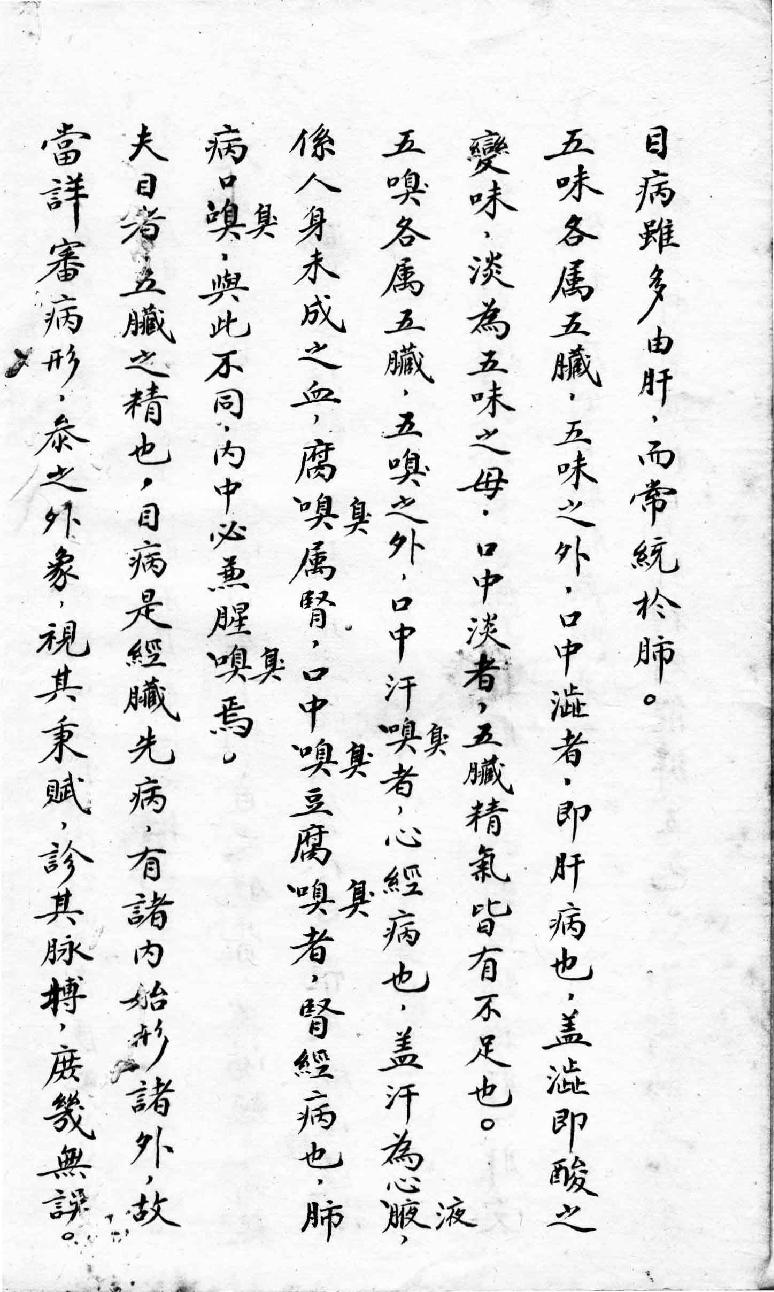 目病雖多由肝，而常統於肺。
五味各属五臟，五味之外，口中澁者，即肝病也，盖澁即酸之
變味，淡為五味之母，口中淡者，五臟精氣皆有不足也。
五嗅各属五臟，五嗅之外，口中汗嗅臭者，心經病也，盖汗為心腋液，
係人身未成之血，腐嗅臭属腎，口中嗅臭豆腐嗅臭者，腎經病也，肺
病口嗅臭，與此不同，内中必兼腥嗅臭焉。
夫目者，五臟之精也，目病是經臟先病，有諸内始形諸外，故
當詳審病形，叅之外象，視其秉賦，診其脉搏，庶幾無誤。